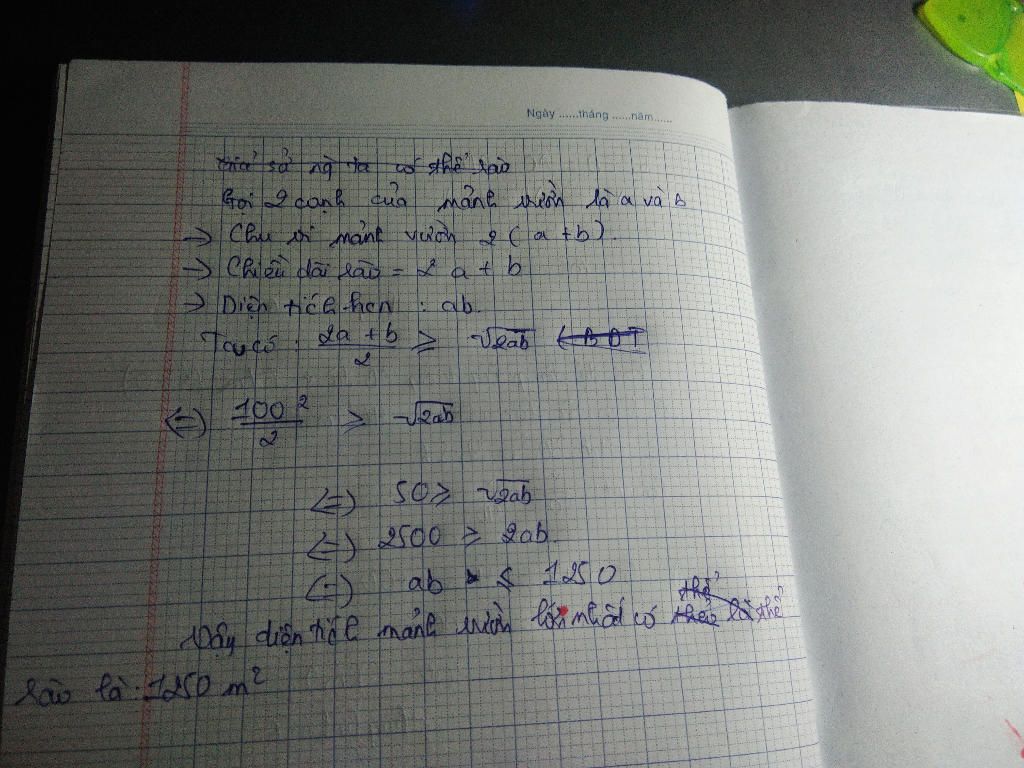 Ngày ......tháng ......năm......
Giả sử ng ta có thể rào
Gọi 2 cạnh của mảnh vườn là a và b
→ Chu vi mảnh vườn 2 ( a + b ).
→ Chiều dài rào = 2 a + b
→ Diện tích hcn : ab.
Ta có : (2a + b)/2 ⩾ √2ab ← BĐT
⇔ 100²/2 ⩾ √2ab
⇔ 50 ⩾ √2ab
⇔ 2500 ⩾ 2ab
⇔ ab ⩽ 1250
thể
Vậy diện tích mảnh vườn lớn nhất có là thể
rào là : 1250 m²